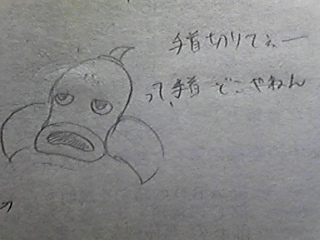 手首切りてぇー
って、手首どこやねん